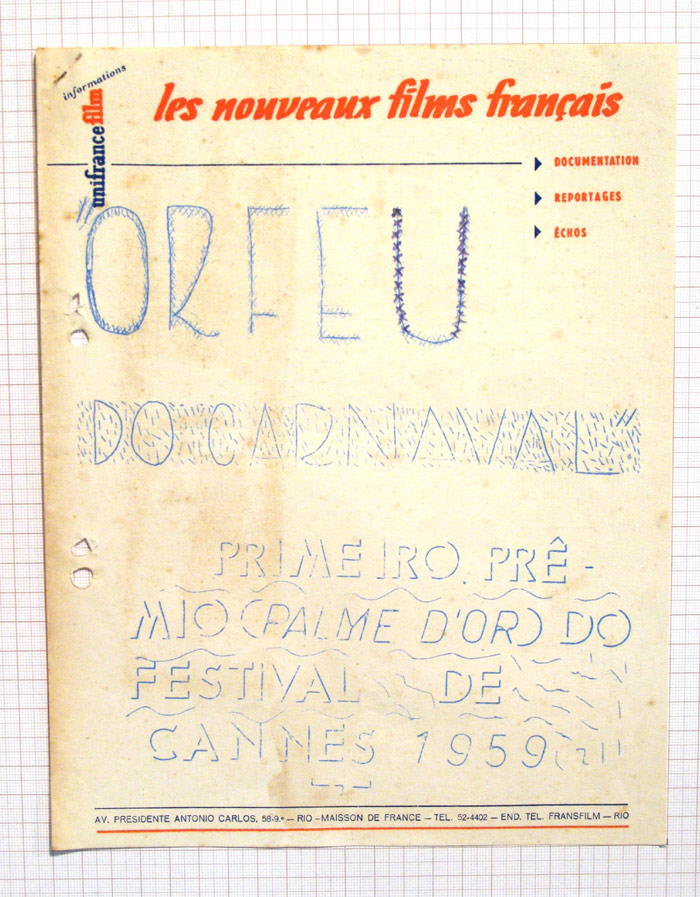 informations
unifrancefilm
les nouveaux films français
DOCUMENTATION
REPORTAGES
ÉCHOS
"ORFEU
DO CARNAVAL"
PRIMEIRO PRÊ-
MIO (PALME D'OR) DO
FESTIVAL DE
CANNES 1959
AV. PRESIDENTE ANTONIO CARLOS, 58-9.º — RIO – MAISSON DE FRANCE — TEL. 52-4402 — END. TEL. FRANSFILM — RIO